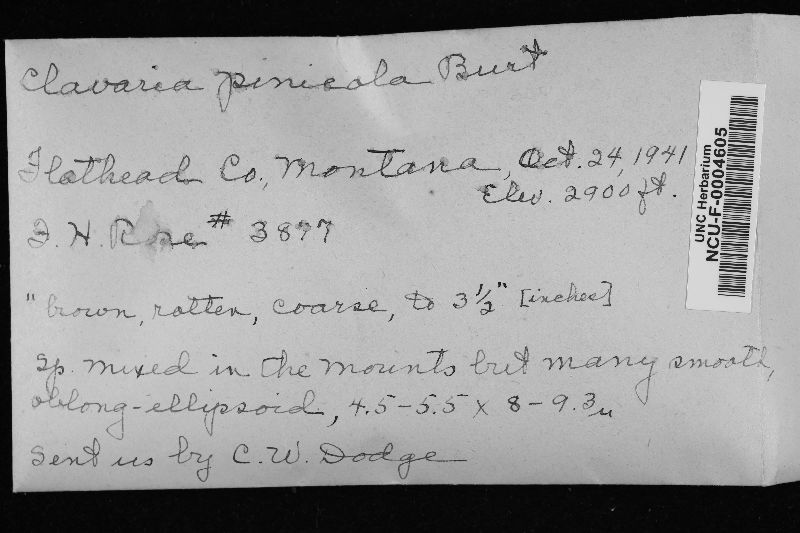 Clavaria pinicola Burt
Flathead Co., Montana, Oct. 24, 1941
Elev. 2900 ft.
F. H. Rose # 3877
"brown, rotten, coarse, to 3 1/2" [inches]
Sp. mixed in the mounts but many smooth,
oblong-ellipsoid, 4.5-5.5 x 8-9.3 u
Sent us by C. W. Dodge
UNC Herbarium
NCU-F-0004605